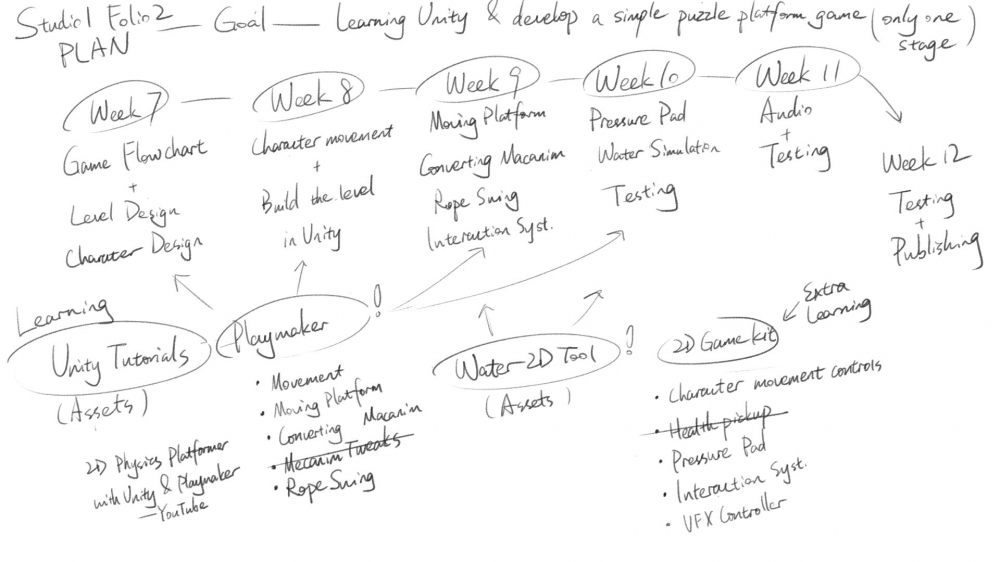 Studio1 Folio2 — Goal — Learning Unity & develop a simple puzzle platform game (only one stage)
PLAN
Week 7 — Week 8 — Week 9 — Week 10 — Week 11
Game Flowchart
+
Level Design
Charater Design
Character movement
+
Build the level
in Unity
Moving Platform
Converting Macanim
Rope Swing
Interaction Syst.
Pressure Pad
Water Simulation
Testing
Audio
+
Testing
Week 12
Testing
+
Publishing
Learning
Unity Tutorials
(Assets)
2D Physics Platformer
with Unity & Playmaker
— YouTube
Playmaker !
• Movement
• Moving Platform
• Converting Macanim
• Mecanim Tweaks
• Rope Swing
Water 2D Tool !
(Assets)
Extra
Learning
2D Game kit
• Character movement controls
• Health pickup
• Pressure Pad
• Interaction Syst.
• VFX Controller